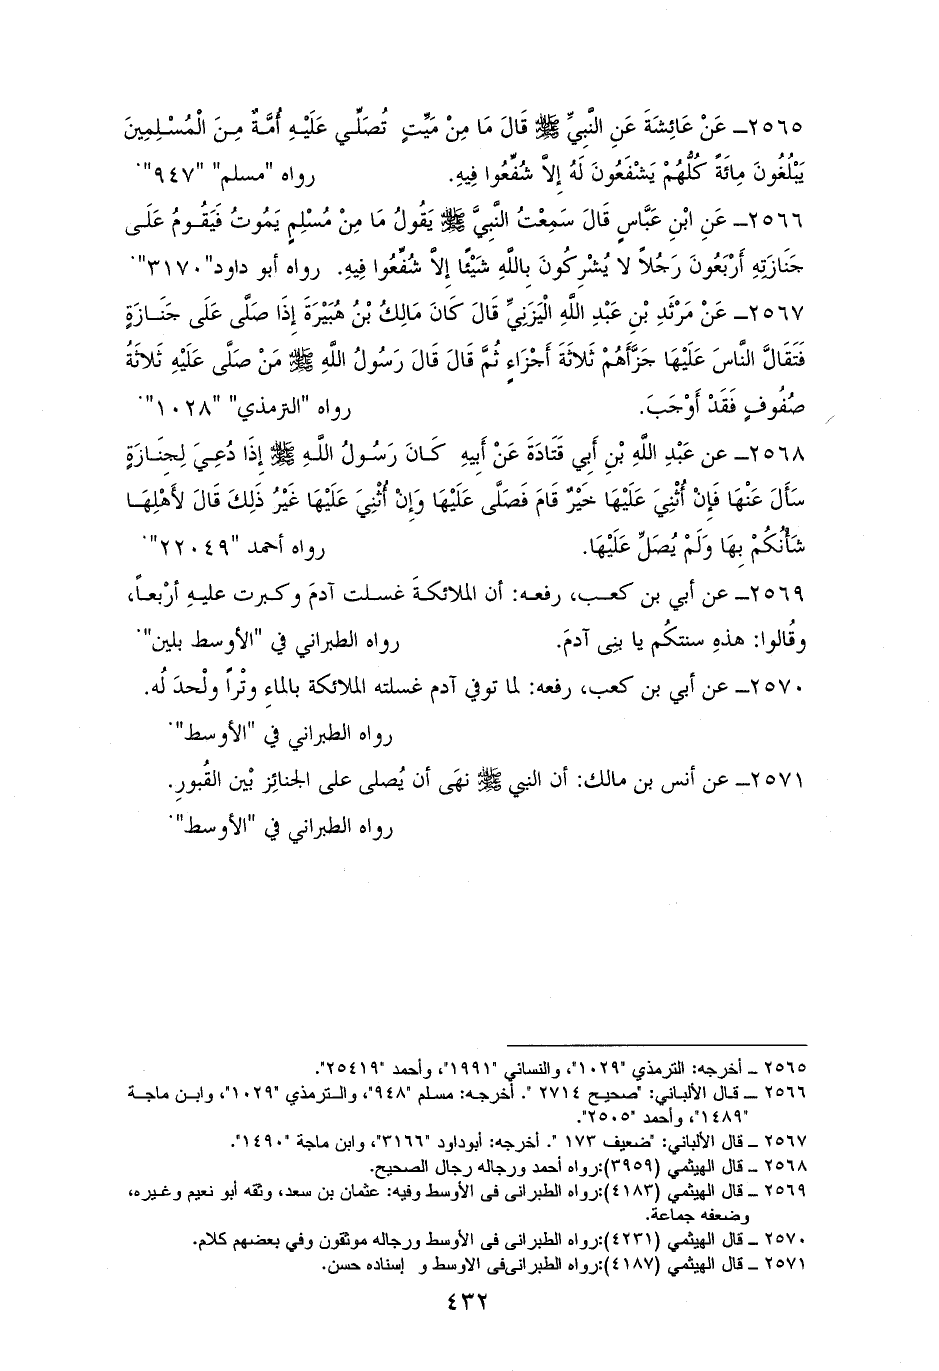 ٢٥٦٥ــ عَنْ عَائِشَةَ عَنِ النَّبِيِّ ﷺ قَالَ مَا مِنْ مَيِّتٍ تُصَلِّي عَلَيْهِ أُمَّةٌ مِنَ الْمُسْلِمِينَ
يَبْلُغُونَ مِائَةً كُلُّهُمْ يَشْفَعُونَ لَهُ إِلاَّ شُفِّعُوا فِيهِ. رواه "مسلم" "٩٤٧".
٢٥٦٦ــ عَنِ ابْنِ عَبَّاسٍ قَالَ سَمِعْتُ النَّبِيَّ ﷺ يَقُولُ مَا مِنْ مُسْلِمٍ يَمُوتُ فَيَقُومُ عَلَى
جَنَازَتِهِ أَرْبَعُونَ رَجُلاً لا يُشْرِكُونَ بِاللَّهِ شَيْئًا إِلاَّ شُفِّعُوا فِيهِ. رواه أبو داود"٣١٧٠".
٢٥٦٧ــ عَنْ مَرْثَدِ بْنِ عَبْدِ اللَّهِ الْيَزَنِيِّ قَالَ كَانَ مَالِكُ بْنُ هُبَيْرَةَ إِذَا صَلَّى عَلَى جَنَازَةٍ
فَتَقَالَّ النَّاسَ عَلَيْهَا جَزَّأَهُمْ ثَلاثَةَ أَجْزَاءٍ ثُمَّ قَالَ قَالَ رَسُولُ اللَّهِ ﷺ مَنْ صَلَّى عَلَيْهِ ثَلاثَةُ
صُفُوفٍ فَقَدْ أَوْجَبَ. رواه "الترمذي" "١٠٢٨".
٢٥٦٨ــ عن عَبْدِ اللَّهِ بْنِ أَبِي قَتَادَةَ عَنْ أَبِيهِ كَانَ رَسُولُ اللَّهِ ﷺ إِذَا دُعِيَ لِجِنَازَةٍ
سَأَلَ عَنْهَا فَإِنْ أُثْنِيَ عَلَيْهَا خَيْرٌ قَامَ فَصَلَّى عَلَيْهَا وَإِنْ أُثْنِيَ عَلَيْهَا غَيْرُ ذَلِكَ قَالَ لأَهْلِهَا
شَأْنُكُمْ بِهَا وَلَمْ يُصَلِّ عَلَيْهَا. رواه أحمد "٢٢٠٤٩".
٢٥٦٩ــ عن أبي بن كعب، رفعه: أن الملائكةَ غسلت آدمَ وكبرت عليهِ أرْبعاً،
وقُالوا: هذهِ سنتكُم يا بنِى آدمَ. رواه الطبراني في "الأوسط بلين".
٢٥٧٠ــ عن أبي بن كعب، رفعه: لما توفي آدم غسلته الملائكة بالماءِ وتْراً ولْحدَ لُه.
رواه الطبراني في "الأوسط".
٢٥٧١ــ عن أنس بن مالك: أن النبي ﷺ نهَى أن يُصلى على الجنائِز بْين القُبورِ.
رواه الطبراني في "الأوسط".
٢٥٦٥ ــ أخرجه: الترمذي "١٠٢٩"، والنسائي "١٩٩١"، وأحمد "٢٥٤١٩".
٢٥٦٦ ــ قال الألباني: "صحيح ٢٧١٤ ". أخرجه: مسلم "٩٤٨"، والترمذي "١٠٢٩"، وابن ماجة
"١٤٨٩"، وأحمد "٢٥٠٥".
٢٥٦٧ ــ قال الألباني: "ضعيف ١٧٣ ". أخرجه: أبوداود "٣١٦٦"، وابن ماجة "١٤٩٠".
٢٥٦٨ ــ قال الهيثمي (٣٩٥٩):رواه أحمد ورجاله رجال الصحيح.
٢٥٦٩ ــ قال الهيثمي (٤١٨٣):رواه الطبرانى فى الأوسط وفيه: عثمان بن سعد، وثقه أبو نعيم وغيره،
وضعفه جماعة.
٢٥٧٠ ــ قال الهيثمي (٤٢٣١):رواه الطبرانى فى الأوسط ورجاله موثقون وفي بعضهم كلام.
٢٥٧١ ــ قال الهيثمي (٤١٨٧):رواه الطبرانىفى الاوسط و إسناده حسن.
٤٣٢